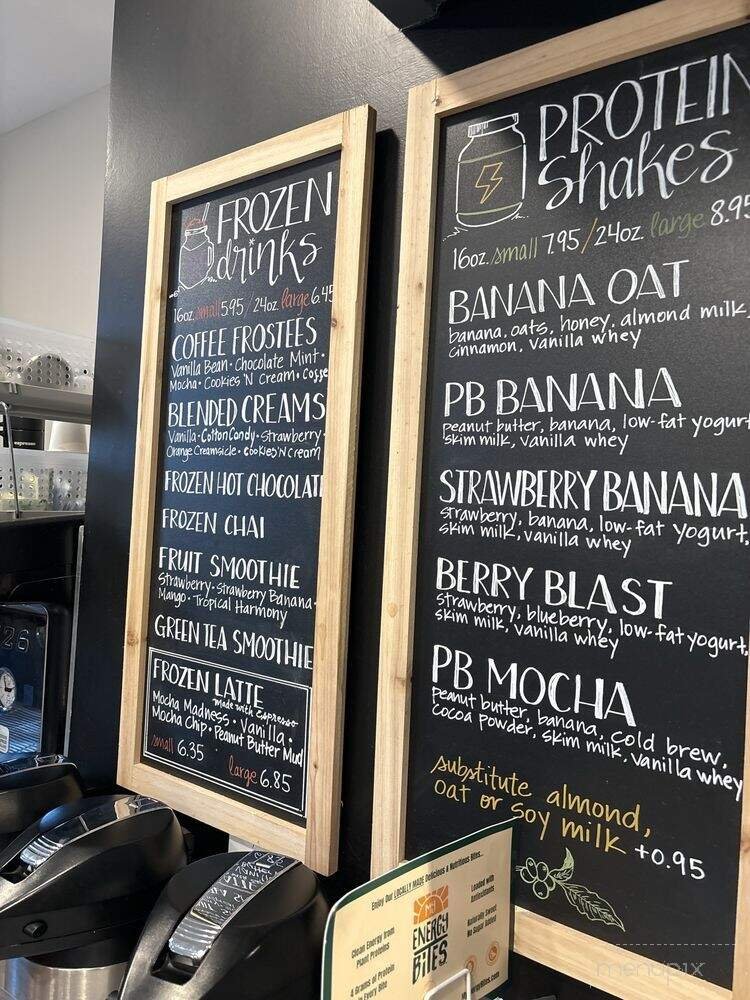 FROZEN
drinks
16oz. small 5.95 / 24oz. large 6.45
COFFEE FROSTEES
Vanilla Bean • Chocolate Mint •
Mocha • Cookies 'N Cream •
BLENDED CREAMS
Vanilla • Cotton Candy • Strawberry •
Orange Creamsicle • cookies'N cream
FROZEN HOT CHOCOLATE
FROZEN CHAI
FRUIT SMOOTHIE
Strawberry • Strawberry Banana •
Mango • Tropical Harmony
GREEN TEA SMOOTHIE
FROZEN LATTE
made with Espresso
Mocha Madness • Vanilla •
Mocha Chip • Peanut Butter Mud
small 6.35
large 6.85
PROTEIN
Shakes
16oz. small 7.95 / 24oz. large 8.95
BANANA OAT
banana, oats, honey, almond milk,
cinnamon, vanilla whey
PB BANANA
peanut butter, banana, low-fat yogurt
skim milk, vanilla whey
STRAWBERRY BANANA
strawberry, banana, low-fat yogurt,
skim milk, vanilla whey
BERRY BLAST
strawberry, blueberry, low-fat yogurt,
skim milk, vanilla whey
PB MOCHA
peanut butter, banana, cold brew,
cocoa powder, skim milk, vanilla whey
substitute almond,
oat or soy milk +0.95
Enjoy Our LOCALLY MADE Delicious & Nutritious Bites...
Clean Energy from
Plant Proteins
4 Grams of Protein
in Every Bite
MY
ENERGY
BITES
Loaded with
Antioxidants
Naturally Sweet
No Sugar Added
menupix